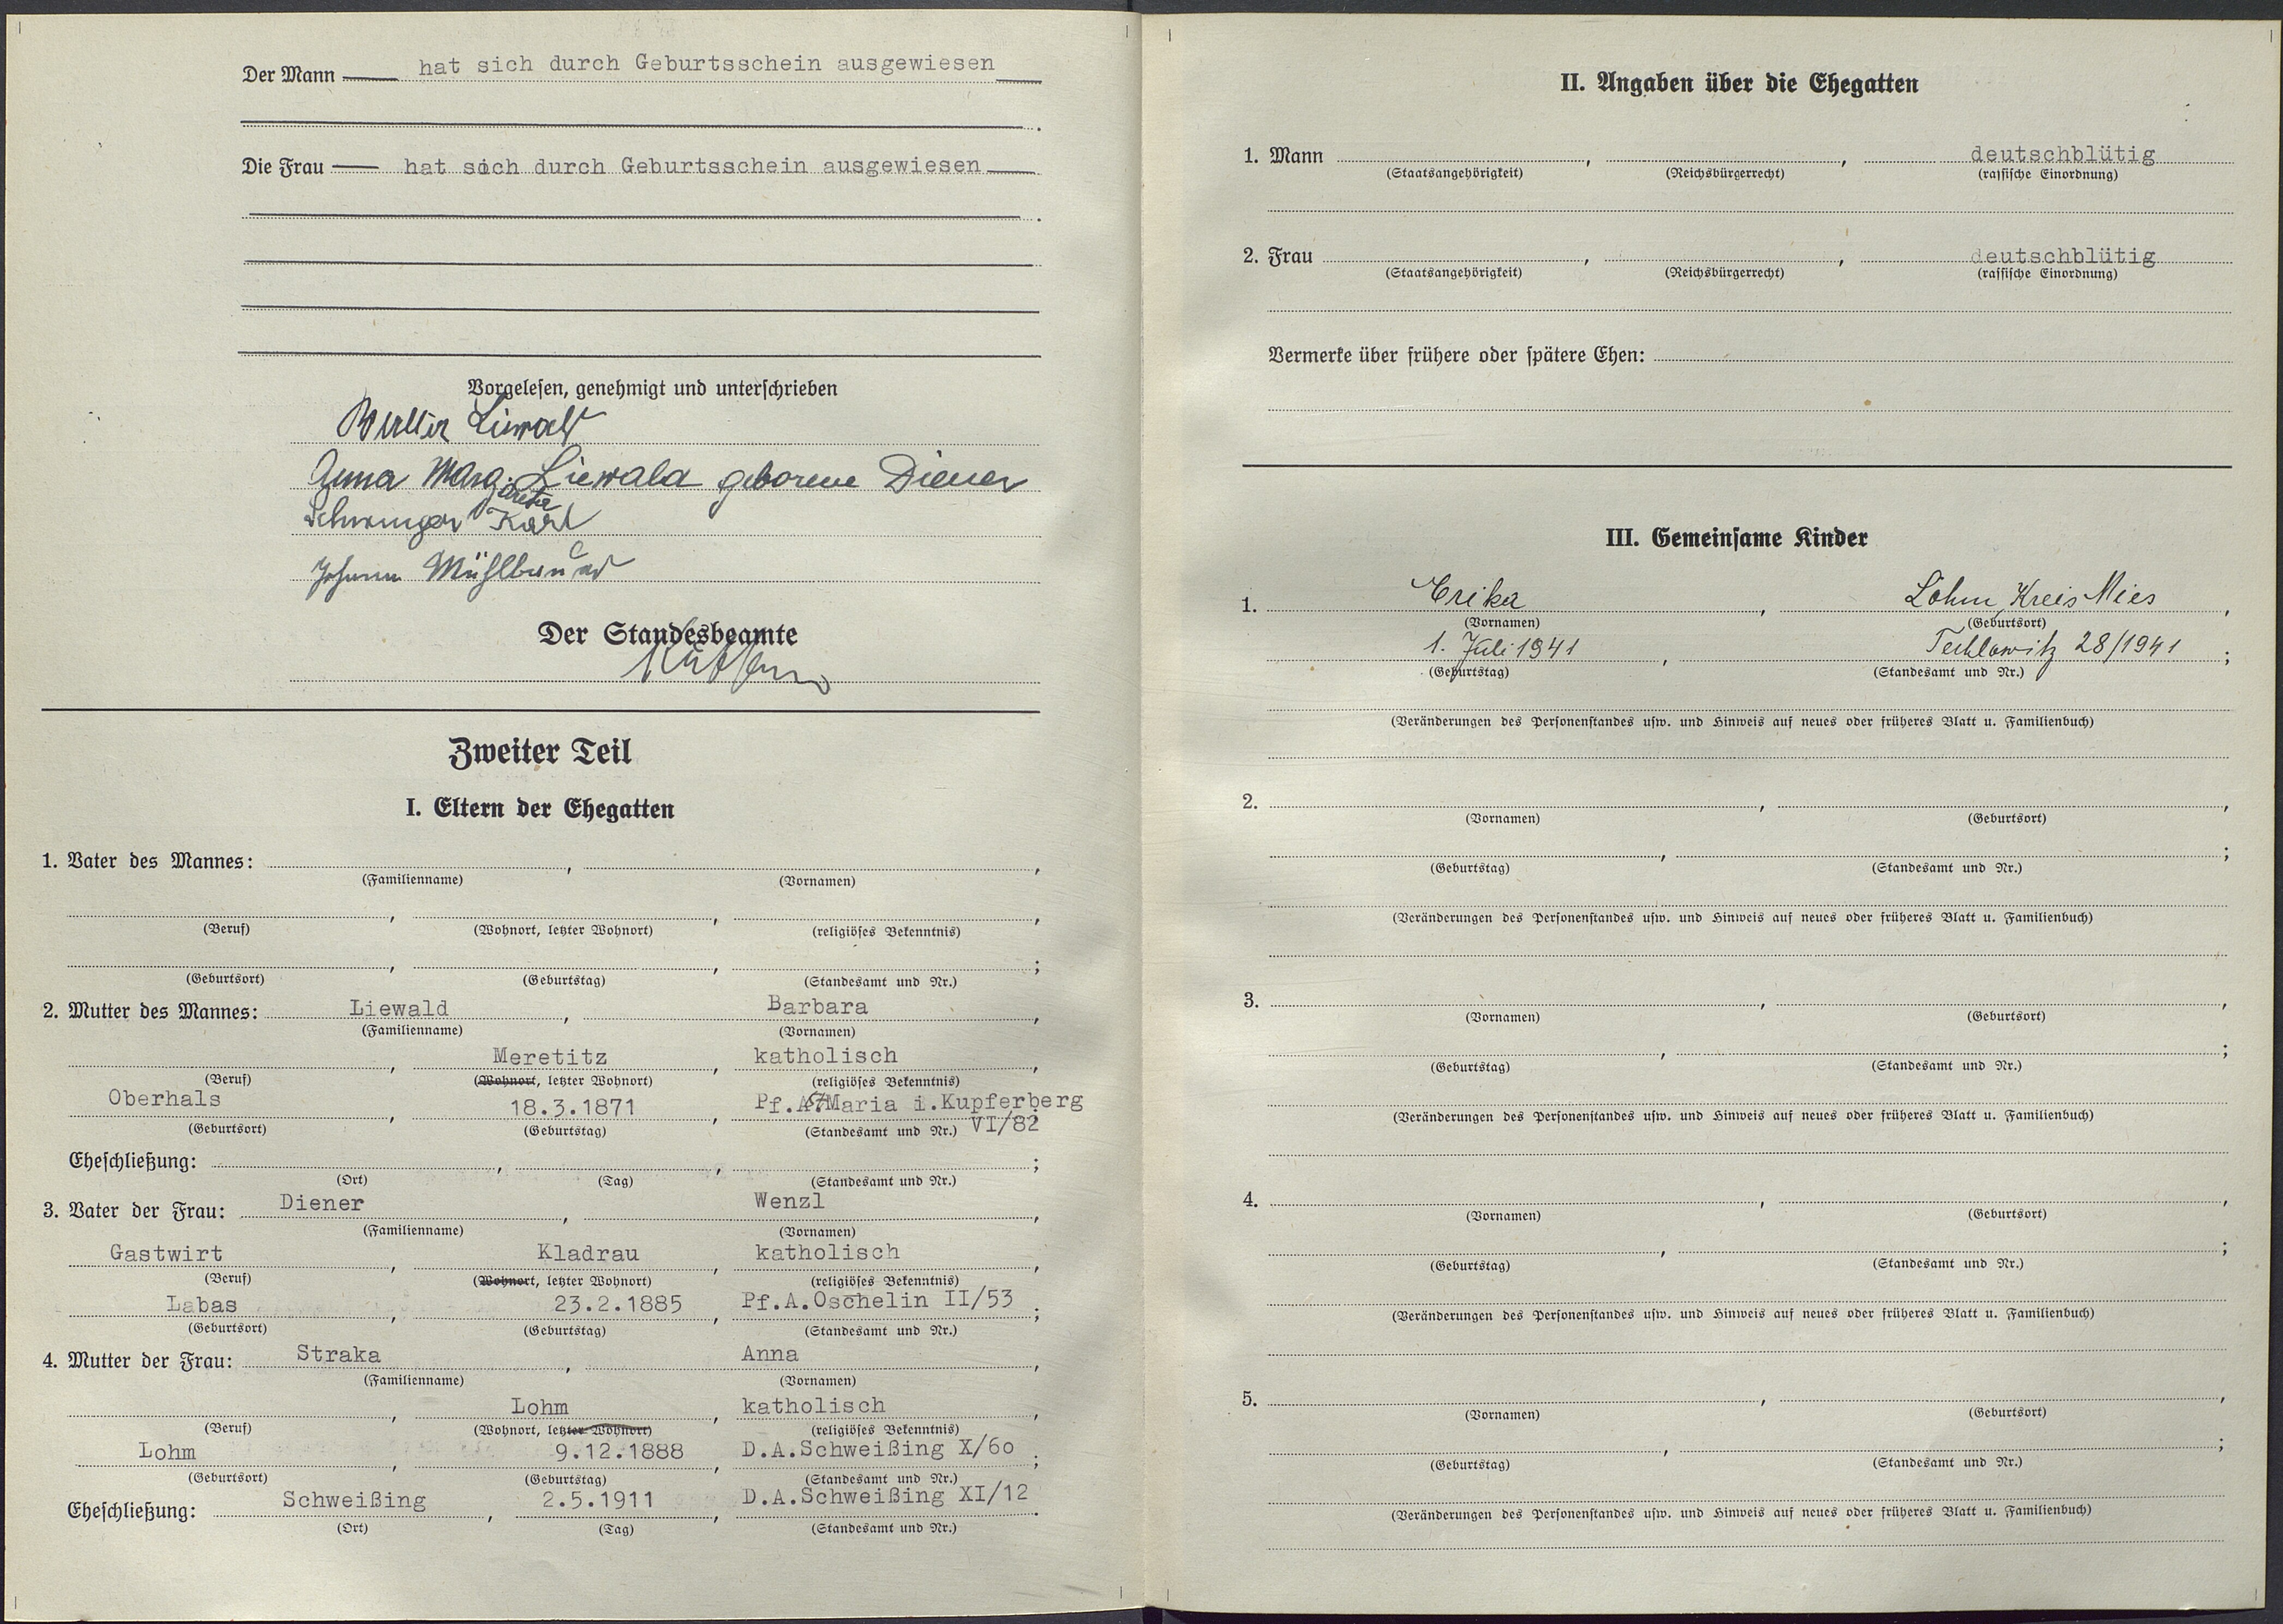 Der Mann hat sich durch Geburtsschein ausgewiesen
.
Die Frau hat sich durch Geburtsschein ausgewiesen
.
Vorgelesen, genehmigt und unterschrieben
Liewald
Anna Marg. Liewald geborene Diener
areta
Schwinger Karl
Johann Mühlbauer
Der Standesbeamte
Zweiter Teil
I. Eltern der Ehegatten
1. Vater des Mannes: , ,
(Familienname) (Vornamen)
, , ,
(Beruf) (Wohnort, letzter Wohnort) (religiöses Bekenntnis)
, , ;
(Geburtsort) (Geburtstag) (Standesamt und Nr.)
2. Mutter des Mannes: Liewald , Barbara ,
(Familienname) (Vornamen)
, Meretitz , katholisch ,
(Beruf) (Wohnort, letzter Wohnort) (religiöses Bekenntnis)
Oberhals , 18.3.1871 , Pf.A. St Maria i.Kupferberg
(Geburtsort) (Geburtstag) (Standesamt und Nr.) VI/82 ;
Eheschließung: , , ;
(Ort) (Tag) (Standesamt und Nr.)
3. Vater der Frau: Diener , Wenzl ,
(Familienname) (Vornamen)
Gastwirt , Kladrau , katholisch ,
(Beruf) (Wohnort, letzter Wohnort) (religiöses Bekenntnis)
Labas , 23.2.1885 , Pf.A.Oschelin II/53 ;
(Geburtsort) (Geburtstag) (Standesamt und Nr.)
4. Mutter der Frau: Straka , Anna ,
(Familienname) (Vornamen)
, Lohm , katholisch ,
(Beruf) (Wohnort, letzter Wohnort) (religiöses Bekenntnis)
Lohm , 9.12.1888 , D.A.Schweißing X/6o ;
(Geburtsort) (Geburtstag) (Standesamt und Nr.)
Eheschließung: Schweißing , 2.5.1911 , D.A.Schweißing XI/12 .
(Ort) (Tag) (Standesamt und Nr.)
II. Angaben über die Ehegatten
1. Mann , , deutschblütig
(Staatsangehörigkeit) (Reichsbürgerrecht) (rassische Einordnung)
2. Frau , , deutschblütig
(Staatsangehörigkeit) (Reichsbürgerrecht) (rassische Einordnung)
Vermerke über frühere oder spätere Ehen:
III. Gemeinsame Kinder
1. Erika , Lohm, Kreis Mies ,
(Vornamen) (Geburtsort)
1. Juli 1941 , Techlowitz 28/1941 ;
(Geburtstag) (Standesamt und Nr.)
(Veränderungen des Personenstandes usw. und Hinweis auf neues oder früheres Blatt u. Familienbuch)
2. , ,
(Vornamen) (Geburtsort)
, ;
(Geburtstag) (Standesamt und Nr.)
(Veränderungen des Personenstandes usw. und Hinweis auf neues oder früheres Blatt u. Familienbuch)
3. , ,
(Vornamen) (Geburtsort)
, ;
(Geburtstag) (Standesamt und Nr.)
(Veränderungen des Personenstandes usw. und Hinweis auf neues oder früheres Blatt u. Familienbuch)
4. , ,
(Vornamen) (Geburtsort)
, ;
(Geburtstag) (Standesamt und Nr.)
(Veränderungen des Personenstandes usw. und Hinweis auf neues oder früheres Blatt u. Familienbuch)
5. , ,
(Vornamen) (Geburtsort)
, ;
(Geburtstag) (Standesamt und Nr.)
(Veränderungen des Personenstandes usw. und Hinweis auf neues oder früheres Blatt u. Familienbuch)